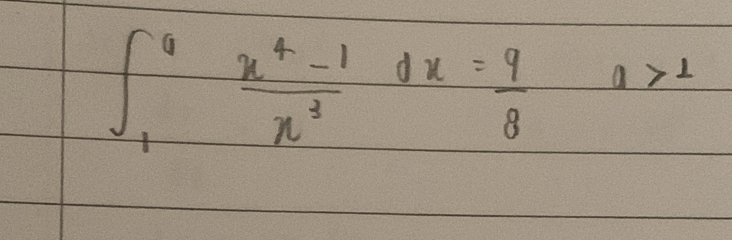 ∫₁ᵃ (x⁴ - 1)/x³ dx = 9/8 a > 1